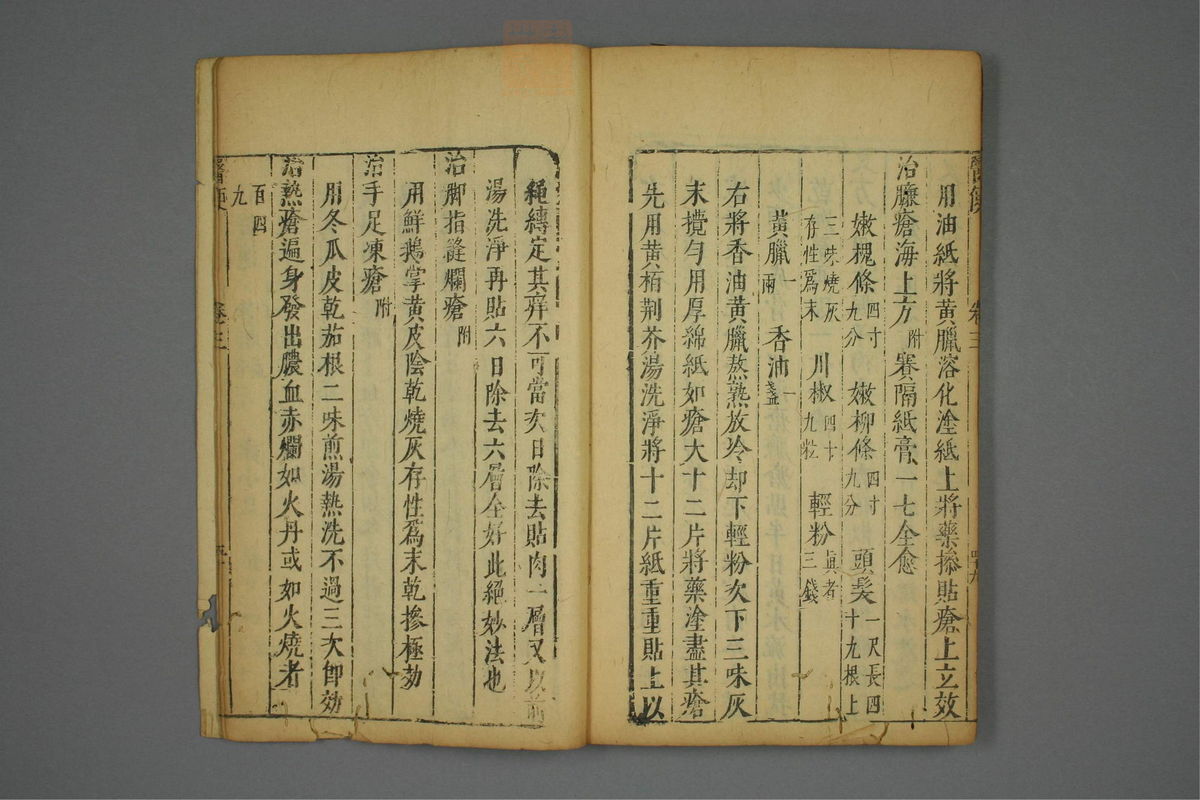 用油紙將黃臘溶化塗紙上將藥摻貼瘡上立效
治臁瘡海上方附賽隔紙膏一七全愈
嫩槐條四寸九分 嫩柳條四寸九分 頭髮一尺長四十九根上
三味燒灰存性爲末 川椒四十九粒 輕粉眞者三錢
黃臘一兩 香油一盞
右將香油黃臘熬熟放冷却下輕粉次下三味灰
末攪勻用厚綿紙如瘡大十二片將藥塗盡其瘡
先用黃栢荆芥湯洗淨將十二片紙重重貼上以
繩縳定其痒不可當次日除去貼肉一層又以前
湯洗淨再貼六日除去六層全好此絕妙法也
治脚指縫爛瘡附
用鮮鵝掌黃皮陰乾燒灰存性爲末乾摻極効
治手足凍瘡附
用冬瓜皮乾茄根二味煎湯熱洗不過三次卽効
治熱瘡遍身發出膿血赤爛如火丹或如火燒者
百四九
卷三